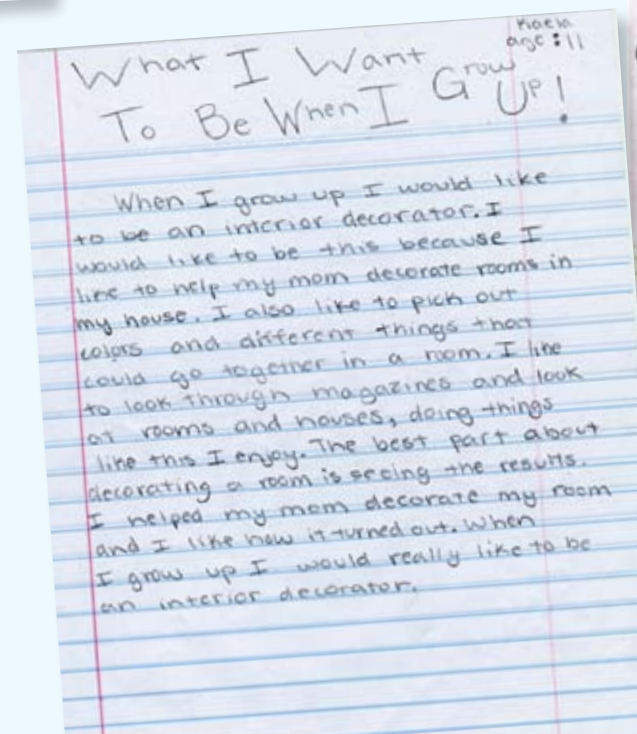 Kaela
age : 11
What I Want
To Be When I Grow Up!
When I grow up I would like
to be an interior decorator. I
would like to be this because I
like to help my mom decorate rooms in
my house. I also like to pick out
colors and different things that
could go together in a room. I like
to look through magazines and look
at rooms and houses, doing things
like this I enjoy. The best part about
decorating a room is seeing the results.
I helped my mom decorate my room
and I like how it turned out. When
I grow up I would really like to be
an interior decorator.